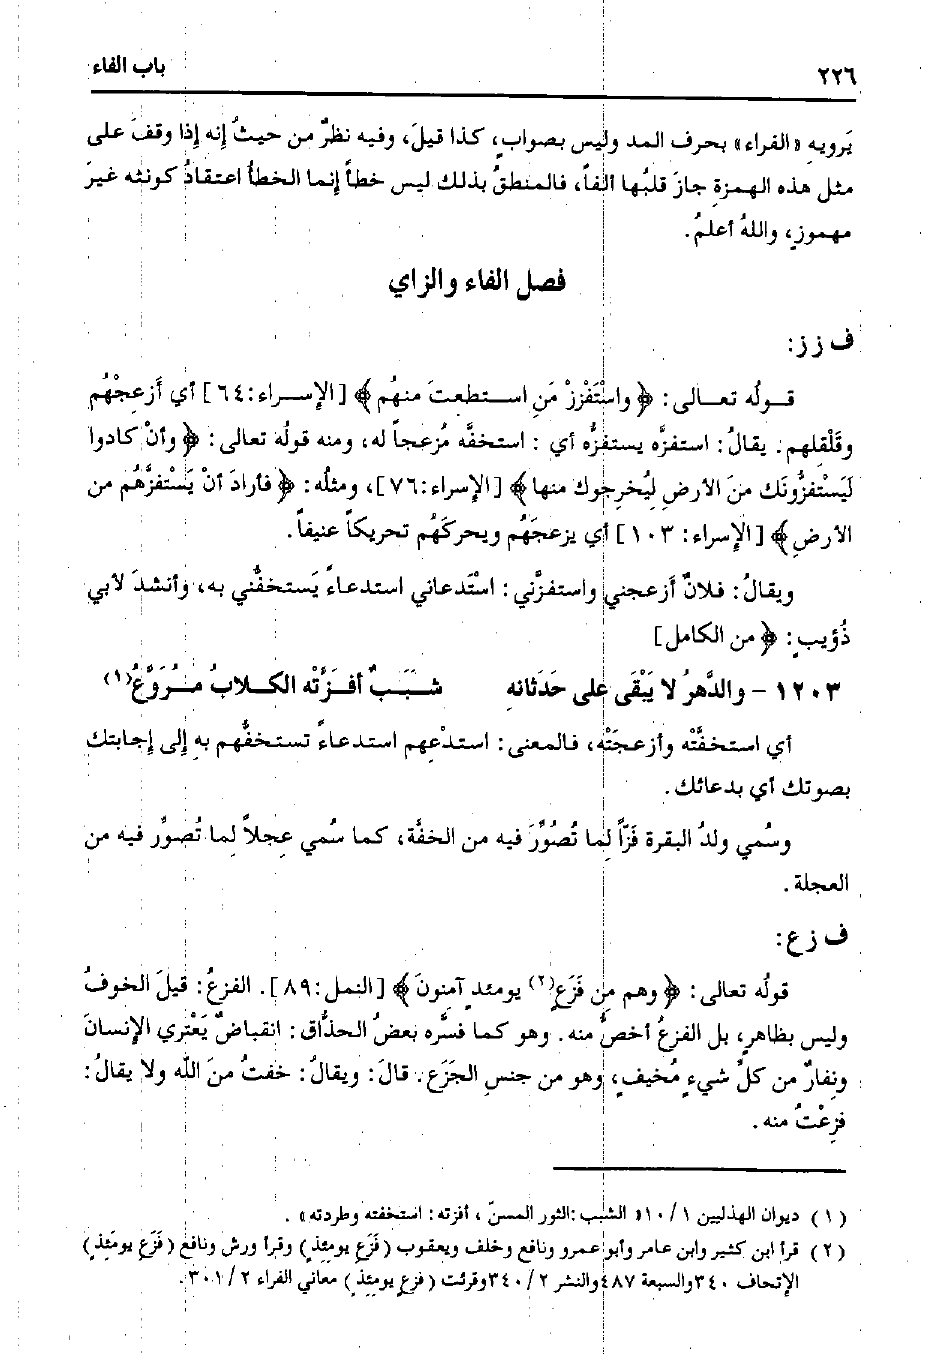 ٢٢٦
باب الفاء
يَرويهِ «الفراء» بحرف المد وليس بصوابٍ، كذا قيلَ، وفيه نظرٌ من حيثُ إنه إذا وقفَ على
مثل هذه الهمزةِ جازَ قلبُها ألفاً، فالمنطقُ بذلك ليس خطأ إنما الخطأ اعتقادُ كونُه غيرَ
مهموزٍ، واللهُ أعلمُ.
فصل الفاء والزاي
ف ز ز:
قـولُه تعـالى: ﴿ واسْتَفْزِزْ مَنِ استـطعتَ منهُم﴾ [الإسـراء:٦٤] أي أَزعِجْهُم
وقَلْقِلهم. يقالُ: استفزَّه يستفزُّه أي: استخفَّه مُزعجاً له، ومنه قولُه تعالى: ﴿ وأنْ كادوا
لَيَسْتفزُّونَك منَ الأرضِ ليُخرجوك منها﴾ [الإسراء:٧٦]، ومثلُه: ﴿ فأرادَ أنْ يَسْتفزَّهُم من
الأرضِ﴾ [الإسراء: ١٠٣] أي يزعجَهُم ويحركَهُم تحريكاً عنيفاً.
ويقالُ: فلانٌ أزعجني واستفزَّني: اسْتَدعاني استدعاءً يَستخفُّني به، وأنشدَ لأبي
ذُؤيبٍ: ﴿ من الكامل]
١٢٠٣ - والدَّهرُ لا يَبْقَى على حَدَثانه     شَـبَـبٌ أفـزَّتْه الكـلابُ مـُروَّعُ(١)
أي استخفَّتْه وأزعجَتْه، فالمعنى: استدْعِهم استدعاءً تستخفُّهم به إلى إجابتك
بصوتك أي بدعائك.
وسُمي ولدُ البقرة فَزّاً لِما تُصُوِّرَ فيه من الخفَّة، كما سُمي عجلاً لما تُصوِّر فيه من
العجلة.
ف ز ع:
قولُه تعالى: ﴿ وهم من فَزَعٍ(٢) يومئذٍ آمنونَ﴾ [النمل:٨٩]. الفزعُ: قيلَ الخوفُ
وليس بظاهرٍ، بل الفزعُ أخصُّ منه. وهو كما فسَّره بعضُ الحذَّاق: انقباضٌ يَعْتري الإنسانَ
ونِفارٌ من كلِّ شيءٍ مُخيفٍ، وهو من جنسِ الجَزَع. قالَ: ويقالُ: خفتُ منَ الله ولا يقالُ:
فزِعْتُ منه.
(١) ديوان الهذليين ١/ ١٠ «الشبب:الثور المسنّ ، أفزته: استخفته وطردته» .
(٢) قرأ ابن كثير وابن عامر وأبو عمرو ونافع وخلف ويعقوب (فَزَعِ يومَئِذٍ) وقرأ ورش ونافع (فَزَعِ يومَئذٍ)
الإتحاف ٣٤٠ والسبعة ٤٨٧ والنشر ٢/ ٣٤٠ وقرئت (فزعٍ يومِئذٍ) معاني الفراء ٢/ ٣٠١.